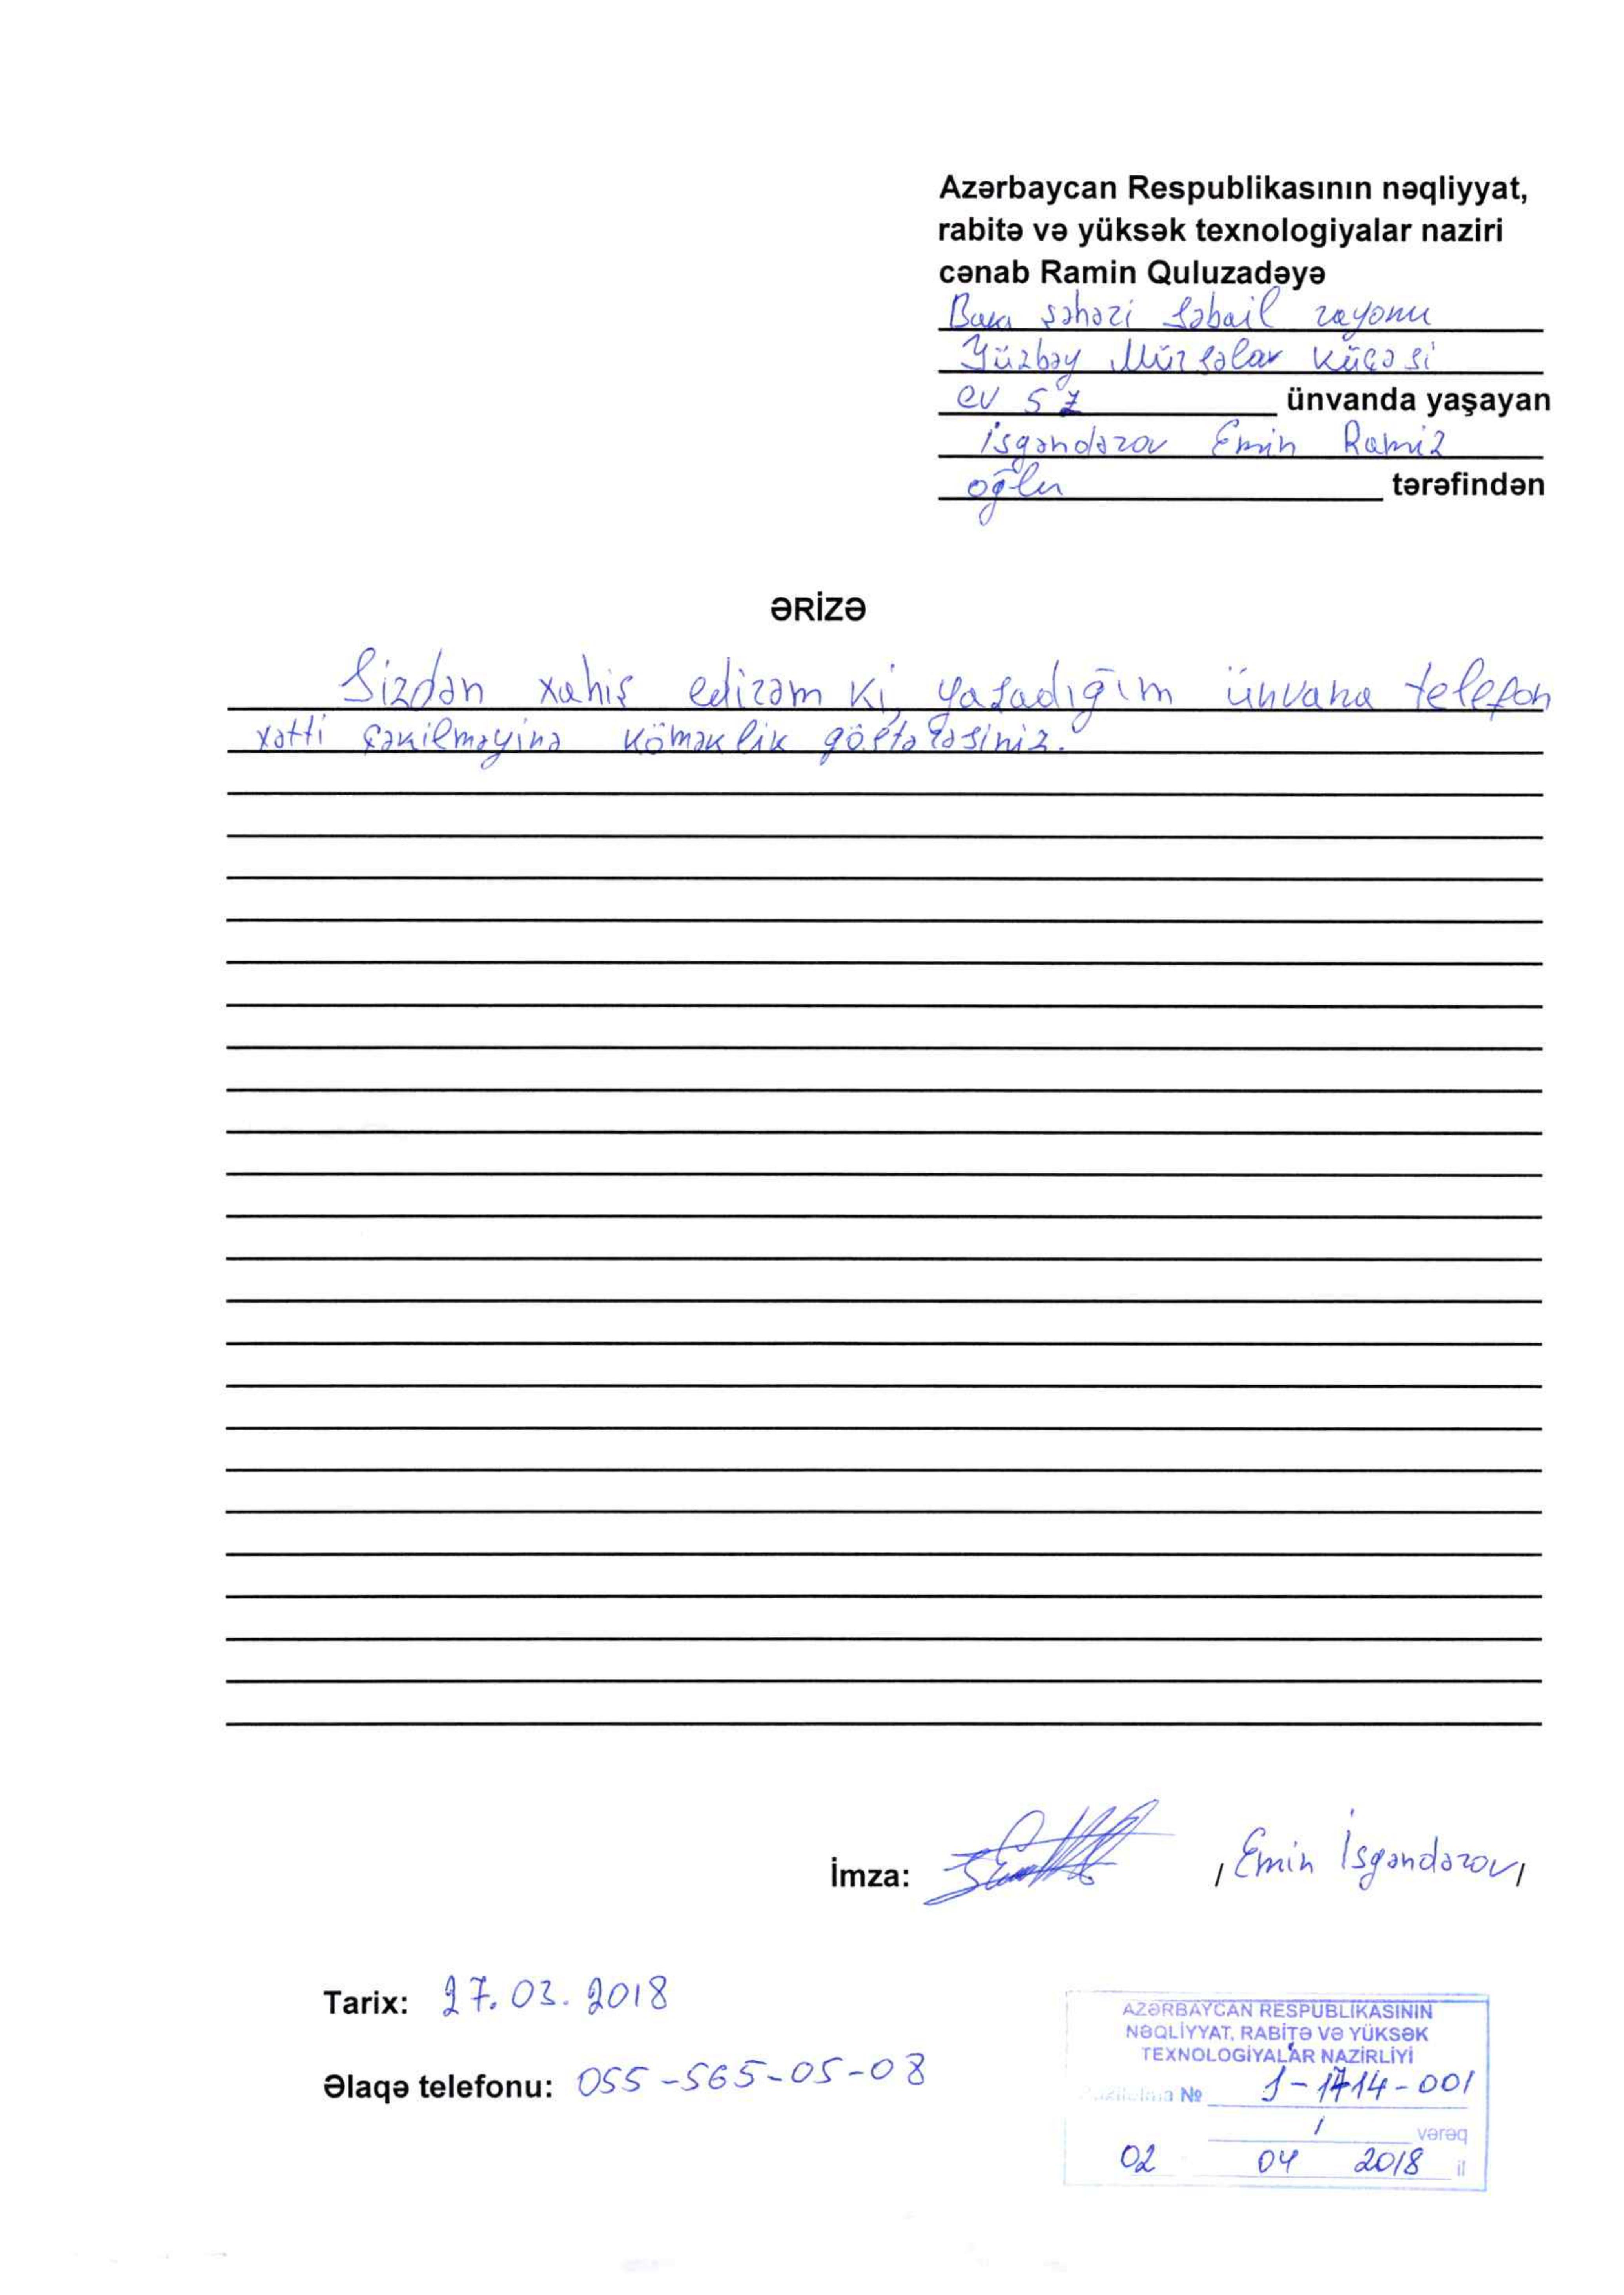 Azərbaycan Respublikasının nəqliyyat,
rabitə və yüksək texnologiyalar naziri
cənab Ramin Quluzadəyə
Bakı şəhəri Səbail rayonu
Yüzbəy Mürsəlov küçəsi
ev 57 ünvanda yaşayan
İsgəndərov Emin Ramiz
oğlu tərəfindən
ƏRİZƏ
Sizdən xahiş edirəm ki, yaşadığım ünvana telefon
xətti çəkilməyinə köməklik göstərəsiniz.
İmza: /Emin İsgəndərov/
Tarix: 27.03.2018
AZƏRBAYCAN RESPUBLİKASININ
NƏQLİYYAT, RABİTƏ VƏ YÜKSƏK
TEXNOLOGİYALAR NAZİRLİYİ
Əlaqə telefonu: 055-565-05-08
№ 1-1714-001
1 vərəq
02 04 2018 il